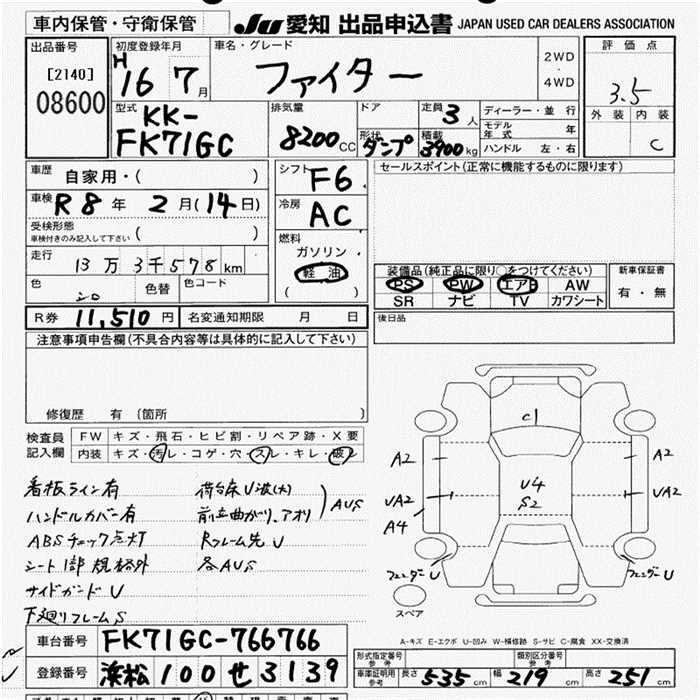 車内保管・守衛保管 JU 愛知 出品申込書 JAPAN USED CAR DEALERS ASSOCIATION
出品番号 初度登録年月 車名・グレード 2WD・4WD 評価点
[2140] H16 7月 ファイター 3.5
08600 外装 内装
型式 KK-FK71GC 排気量 8200cc ドア 形状 ダンプ 定員 3人 積載 3900kg ディーラー・並行 C
モデル年式 年
ハンドル 左・右
車歴 自家用・( ) シフト F6 セールスポイント(正常に機能するものに限ります)
車検 R8年 2月(14日) 冷房 AC
受検形態 ( )
車検付きのみ記入して下さい
燃料 ガソリン
走行 13万3千578km 軽油
( )
色 シロ 色替 色コード
装備品(純正品に限り○をつけてください) 新車保証書
PS PW エアB AW 有・無
SR ナビ TV カワシート
R券 11,510円 名変通知期限 月 日 後日品
注意事項申告欄(不具合内容等は具体的に記入して下さい)
修復歴 有 (箇所 )
検査員 FW キズ・飛石・ヒビ割・リペア跡・X要
記入欄 内装 キズ・汚レ・コゲ・穴・スレ・キレ・破レ
看板ライン有 荷台床U波(大)
ハンドルカバー有 前立曲がり、アオリ AUS
ABSチェック点灯 Rフレーム先U
シート1部規格外 各AUS
サイドガードU
下廻りフレームS
C1
A2 A2
U4
S2
UA2 UA2
A4
フェンダーU フェンダーU
スペア
A-キズ E-エクボ U-凹み W-補修跡 S-サビ C-腐食 XX-交換済
車台番号 FK71GC-766766
登録番号 浜松 100 せ 3139
形式指定番号 参考 類別区分番号 参考
車庫証明用 参考 長さ 535cm 幅 219cm 高さ 251cm